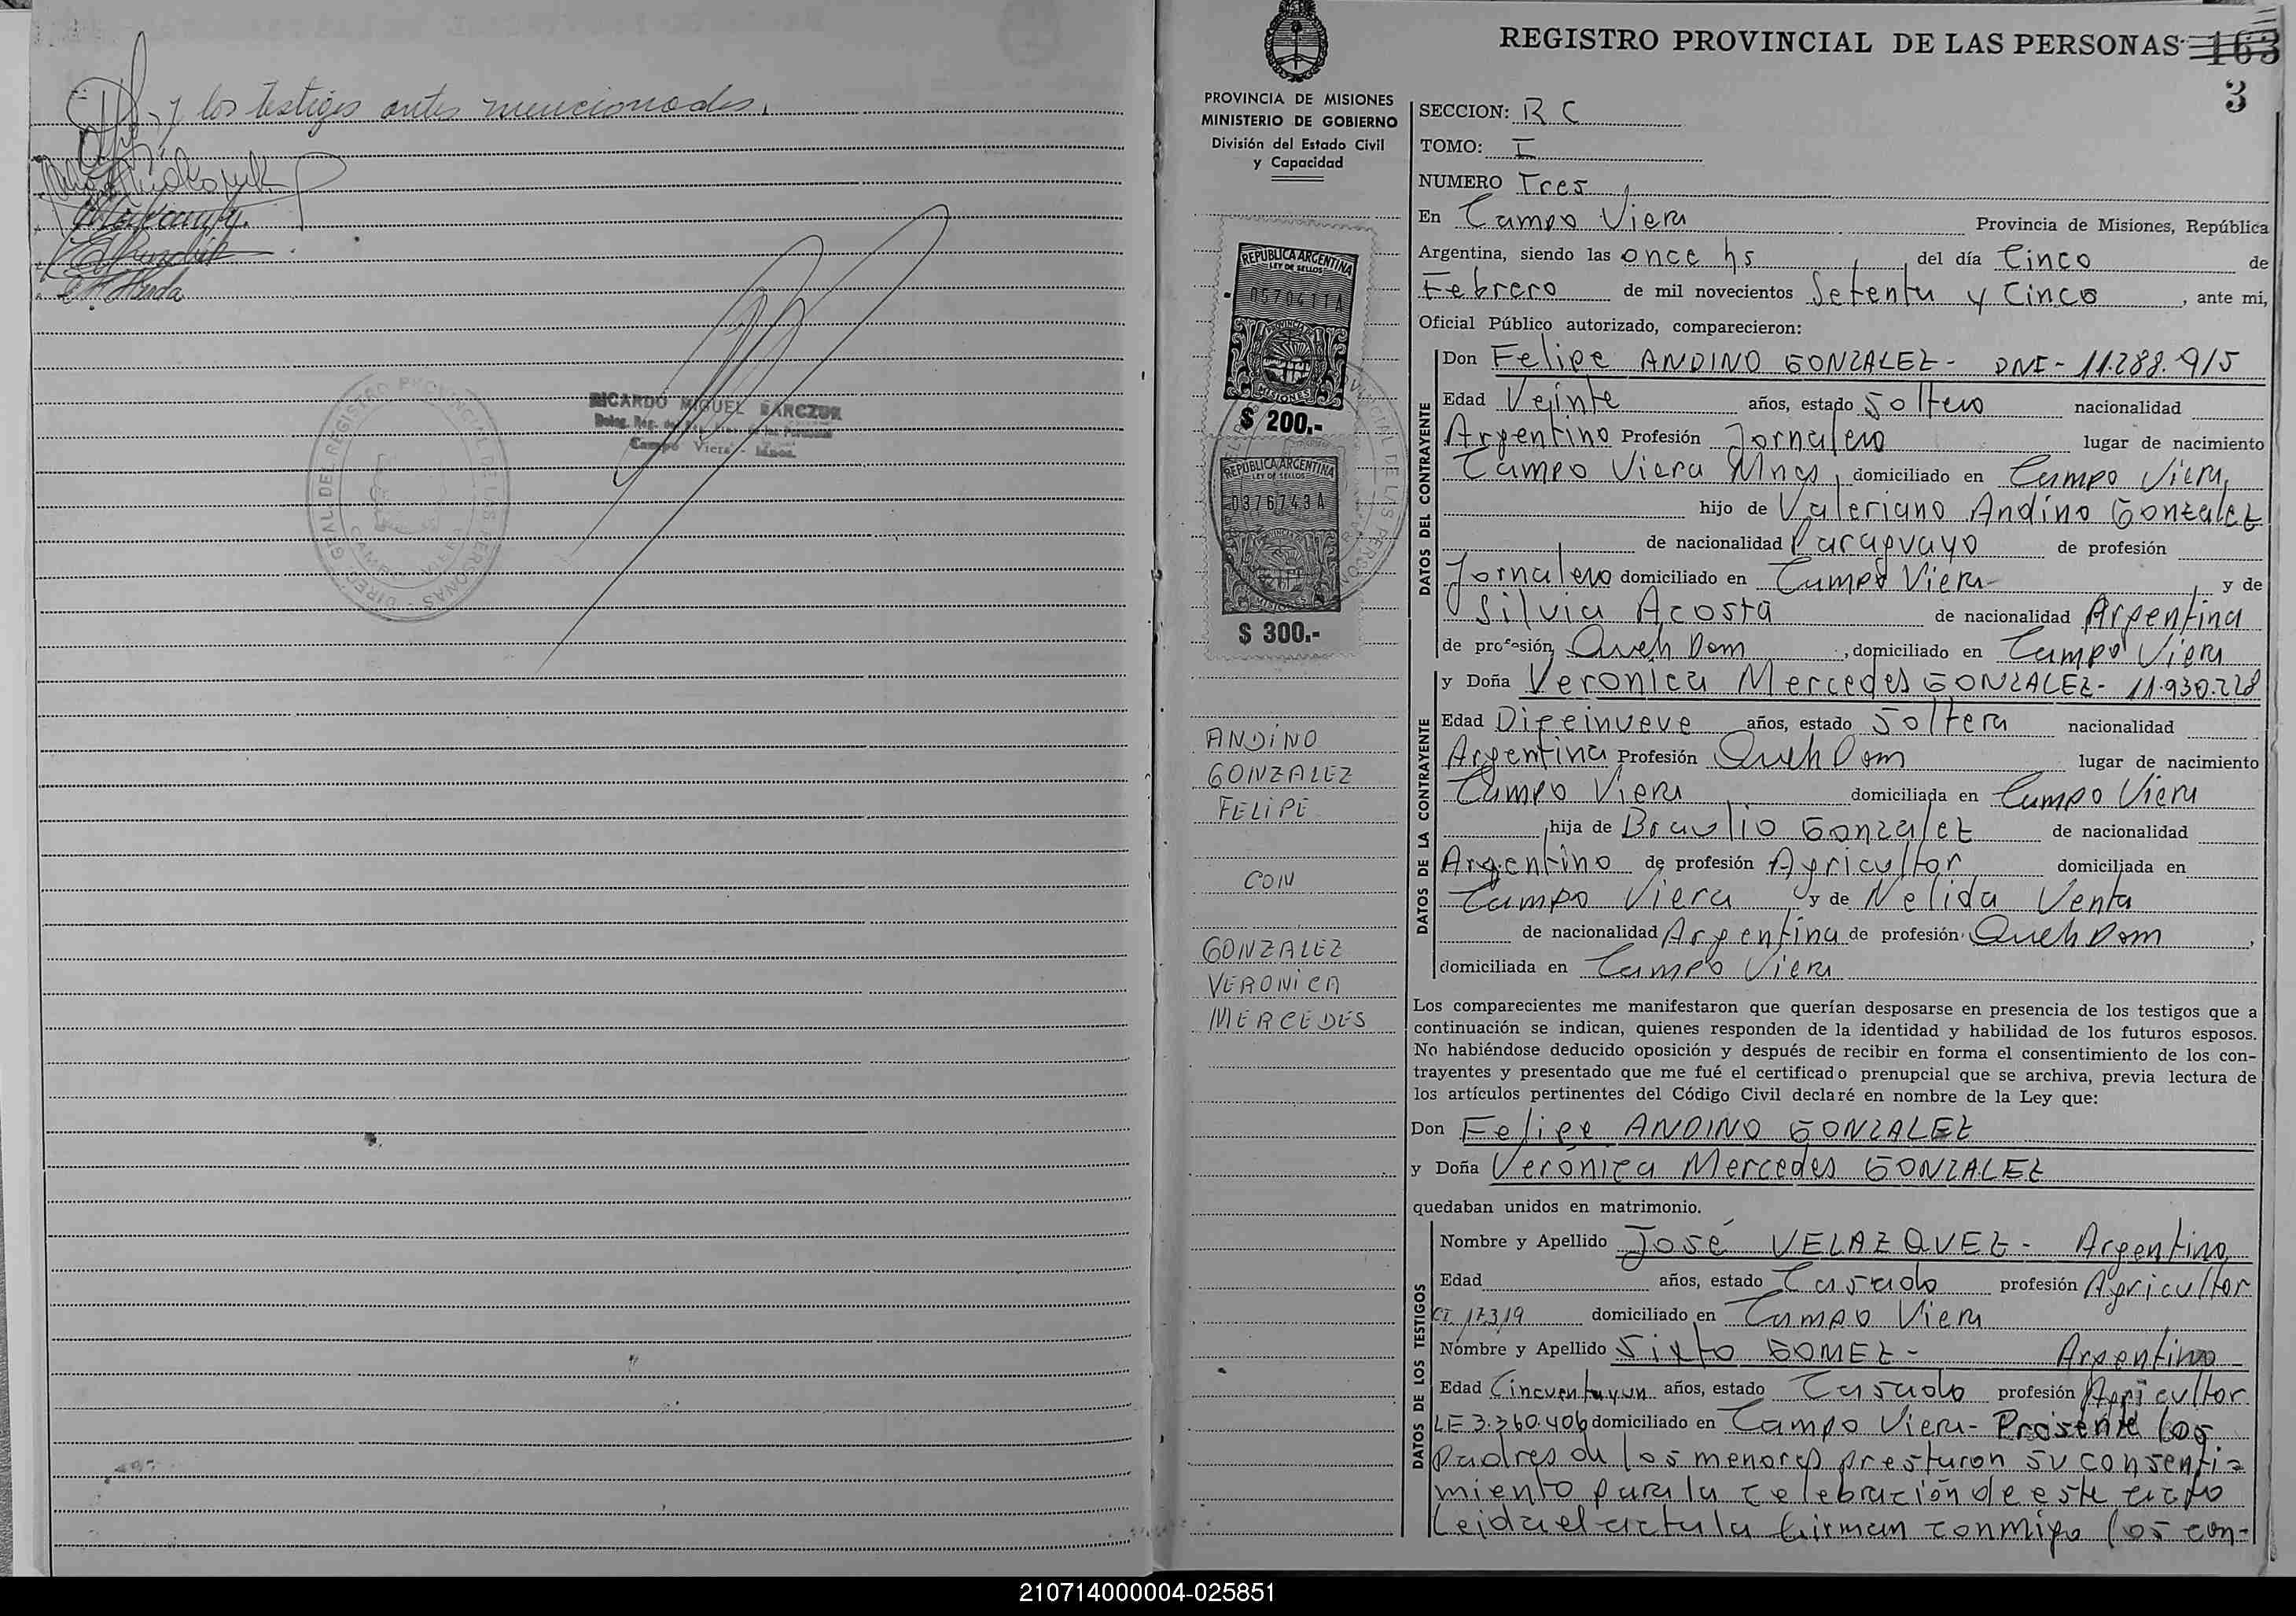 y los testigos antes mencionados.
RICARDO MIGUEL BARCZUK
Campo Viera - Mnes.
REGISTRO PROVINCIAL DE LAS PERSONAS
163
3
PROVINCIA DE MISIONES
MINISTERIO DE GOBIERNO
División del Estado Civil
y Capacidad
REPUBLICA ARGENTINA
LEY DE SELLOS
0570411A
MISIONES
$ 200.-
REPUBLICA ARGENTINA
LEY DE SELLOS
0376743A
MISIONES
$ 300.-
ANDINO
GONZALEZ
FELIPE
CON
GONZALEZ
VERONICA
MERCEDES
SECCION: R C
TOMO: I
NUMERO Tres
En Campo Viera Provincia de Misiones, República
Argentina, siendo las once hs del día Cinco de
Febrero de mil novecientos Setenta y Cinco, ante mi,
Oficial Público autorizado, comparecieron:
DATOS DEL CONTRAYENTE
Don Felipe ANDINO GONZALEZ - DNI - 11.288.915
Edad Veinte años, estado Soltero nacionalidad
Argentino Profesión Jornalero lugar de nacimiento
Campo Viera Mnes, domiciliado en Campo Viera,
hijo de Valeriano Andino Gonzalez
de nacionalidad Paraguayo de profesión
Jornalero domiciliado en Campo Viera- y de
Silvia Acosta de nacionalidad Argentina
de profesión Queh Dom, domiciliado en Campo Viera
DATOS DE LA CONTRAYENTE
y Doña Veronica Mercedes GONZALEZ- 11.930.228
Edad Diecinueve años, estado Soltera nacionalidad
Argentina Profesión Queh Dom lugar de nacimiento
Campo Viera domiciliada en Campo Viera
hija de Braulio Gonzalez de nacionalidad
Argentino de profesión Agricultor domiciliada en
Campo Viera y de Nelida Venta
de nacionalidad Argentina de profesión Queh Dom,
domiciliada en Campo Viera
Los comparecientes me manifestaron que querían desposarse en presencia de los testigos que a
continuación se indican, quienes responden de la identidad y habilidad de los futuros esposos.
No habiéndose deducido oposición y después de recibir en forma el consentimiento de los con-
trayentes y presentado que me fué el certificado prenupcial que se archiva, previa lectura de
los artículos pertinentes del Código Civil declaré en nombre de la Ley que:
Don Felipe ANDINO GONZALEZ
y Doña Verónica Mercedes GONZALEZ
quedaban unidos en matrimonio.
DATOS DE LOS TESTIGOS
Nombre y Apellido José VELAZQUEZ - Argentino
Edad años, estado Casado profesión Agricultor
CI 17319 domiciliado en Campo Viera
Nombre y Apellido Sixto GOMEZ - Argentino
Edad Cincuentayun años, estado Casado profesión Agricultor
LE 3.360.406 domiciliado en Campo Viera- Presente los
padres de los menores prestaron su consenti=
miento para la celebración de este acto
Leida el acta la firman conmigo los con-
210714000004-025851